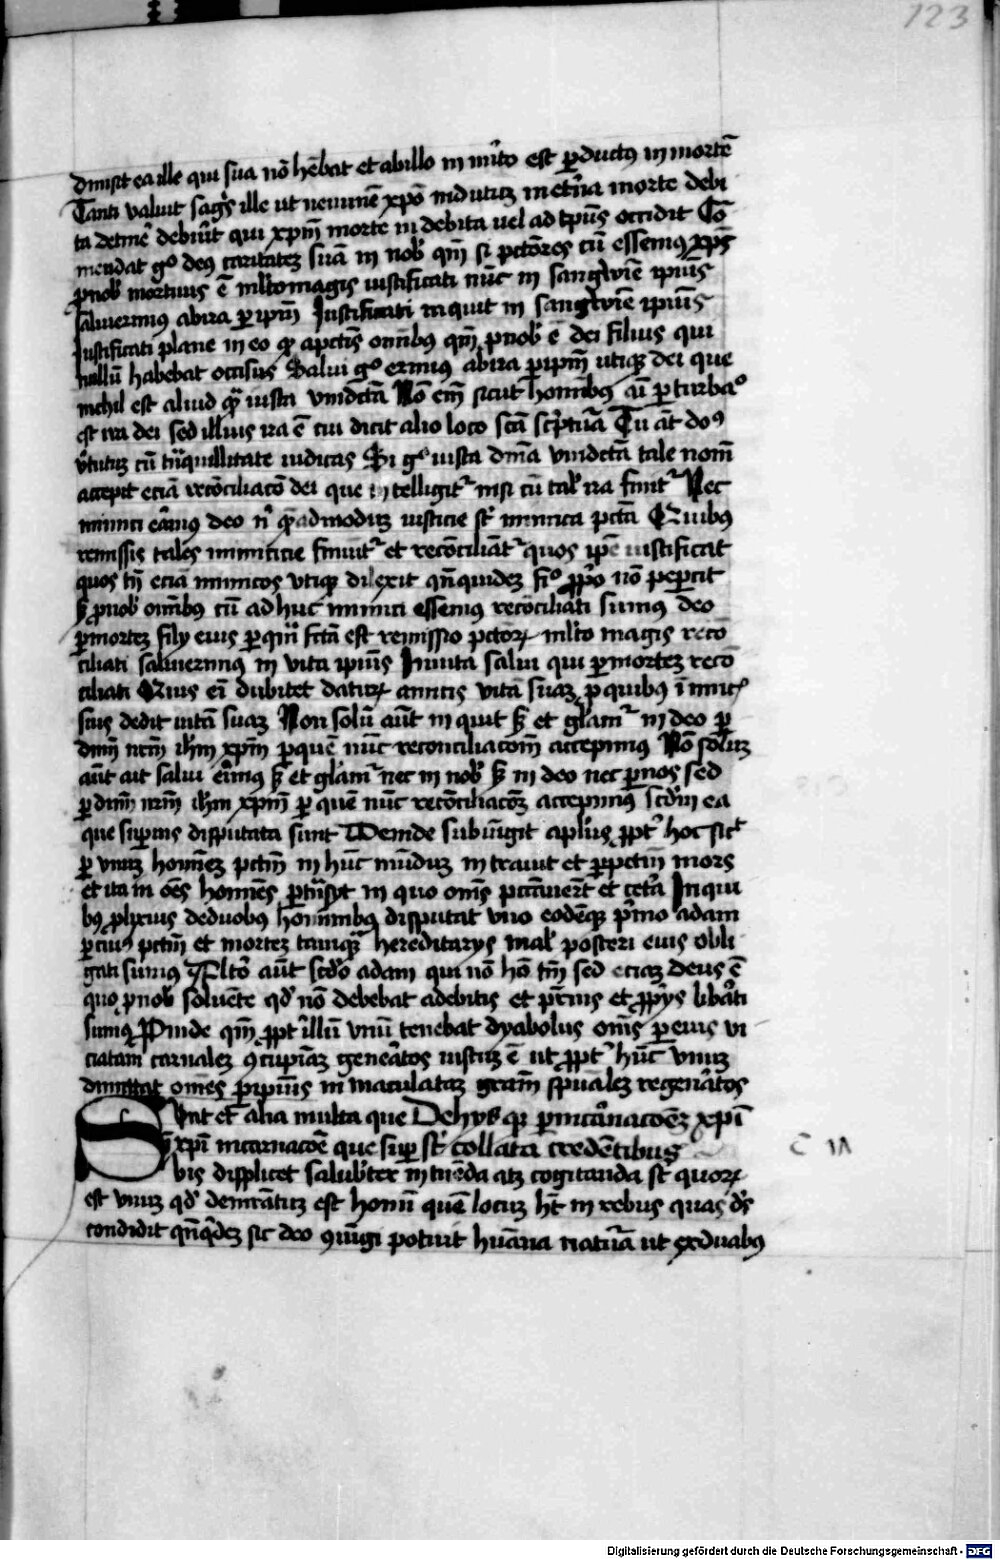 123
dimisit ea ille qui sua nō hēbat et ab illo in mĩto est ꝑductꝰ in mortē
Tanti valuit sãgs ille ut neminē xpō indutuȝ in et̃na morte debi
ta detine᷑ debũit qui xpm̄ morte indebita vel ad tp̄us occidit Cō
mendat gͦ deus caritateȝ suā in nob᷑ qm̄ si pctōres cū essemꝰ xp̄s
ꝓ nob᷑ mortuus ē ml̃to magis iustificati nūc in sangwīe ip̄ius
salui erimus ab ira ꝑ ip̄m Iustificati inquit in sangwīe ip̄ius
Iustificati plane in eo qꝫ a pctīs om̄ibꝰ qm̄ ꝓ nob᷑ ē dei filius qui
nullū habebat occisus Salui gͦ erimus ab ira ꝑ ip̄m utiqꝫ dei que
nichil est aliud qᷓ iusta vindcā Nō em̄ sicut hom̄ibꝰ aī ꝑturbaͦ
est ira dei sed illius ira ē cui dicit alio loco scā scpt̃ura Tu aūt dōs
v̓tutuȝ cū tᷓnquillitate iudicas Si gͦ iusta dīna vindctā tale nom̄
accepit eciā recōciliacō dei que intelligit᷑ nisi cū tal᷑ ira finit᷑ Nec
inimici eᷓmus deo nͥ q̄admoduȝ iusticie st᷑ inimica pctā Quibus
remissis tales inimicicie finiūt᷑ et recōciliāt᷑ quos ip̄e iustificat
quos tn̄ eciā inimicos vtiqꝫ dilexit qn̄quideȝ fiͦ ꝓpͦo nō peꝑcit
sꝫ ꝓ nob᷑ om̄ibꝰ cū adhuc inimici essemus recōciliati sumus deo
ꝑ morteȝ filij eius ꝑ quā fctā est remissio pctōrꝝ ml̃to magis recō
ciliati salui erimus in vita ip̄ius In vita salui qui ꝑ morteȝ recō
ciliati Quis em̄ dubitet daturꝝ amicis vitā suaȝ ꝓ quibus inimi
cius dedit uitā suaȝ Non solū aūt inquit sꝫ et gl̓am᷑ in deo ꝑ
dnm̄ nrm̄ ihm̄ xpm̄ ꝑ quē nūc reconciliacōm accepimus Nō soluȝ
aūt ait salui eͥmus sꝫ et gl̓am᷑ nec in nob᷑ sꝫ in deo nec ꝑ nos sed
ꝑ dnm̄ nrm̄ ihm̄ xpm̄ ꝑ quē nūc recōciliacōȝ accepimus scdm̄ ea
que suꝑius disputata sunt Deinde subiūgit aplūs ꝓpt᷑ hoc sicͭ
ꝑ vnuȝ homineȝ pctm̄ in hūc mūduȝ intrauit et ꝑ pctm̄ mors
et ita in oēs homīes ꝑtᷓnsijt in quo om̄s pccauer̄t et cet̓a In qui
bꝰ ꝓlixius de duobꝰ hominibꝰ disputat vno eodēqꝫ pͥmo adam
ꝑ cuiꝰ pctm̄ et morteȝ tamqᷓ hereditarijs mal᷑ posteri eius obli
gati sumus Altͦo aūt scdͦo adam qui nō hō tm̄ sed eciaȝ deus ē
quo ꝓ nob᷑ soluēte qd᷑ nō debebat a debitis et pat̓nis et ꝓpͥijs lib̓ati
sumꝰ Proinde qm̄ ꝓpt᷑ illū vnū tenebat dyabolus om̄s ꝑ eius vi
ciatam carnaleȝ ꝯcupiaȝ gen̓atos iustuȝ ē ut ꝓpt᷑ hūc vnuȝ
dimittat omēs ꝑ ip̄ius inmaculataȝ grām sp̄ualeȝ regen̓atos
Sunt et alia multa que De hijs qꝫ ꝑ incarnacōeȝ xpī
ī xpī incarnacōe que suꝑ st᷑ collata credētibus
bis displicet salubriter intuēda atqꝫ cogitanda st quorꝝ
est vnuȝ qd᷑ demrātuȝ est homī quē locuȝ ht̄ in rebus quas ds̄
condidit qn̄q̄deȝ sic deo ꝯiūgi potuit hūana natura ut ex duabꝰ
Digitalisierung gefördert durch die Deutsche Forschungsgemeinschaft - DFG